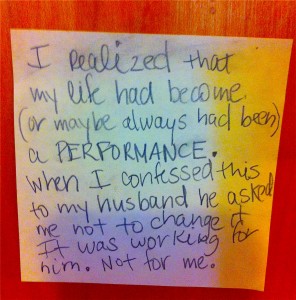 I realized that
my life had become
(or maybe always had been)
a PERFORMANCE.
When I confessed this
to my husband he asked
me not to change it
It was working for
him. Not for me.